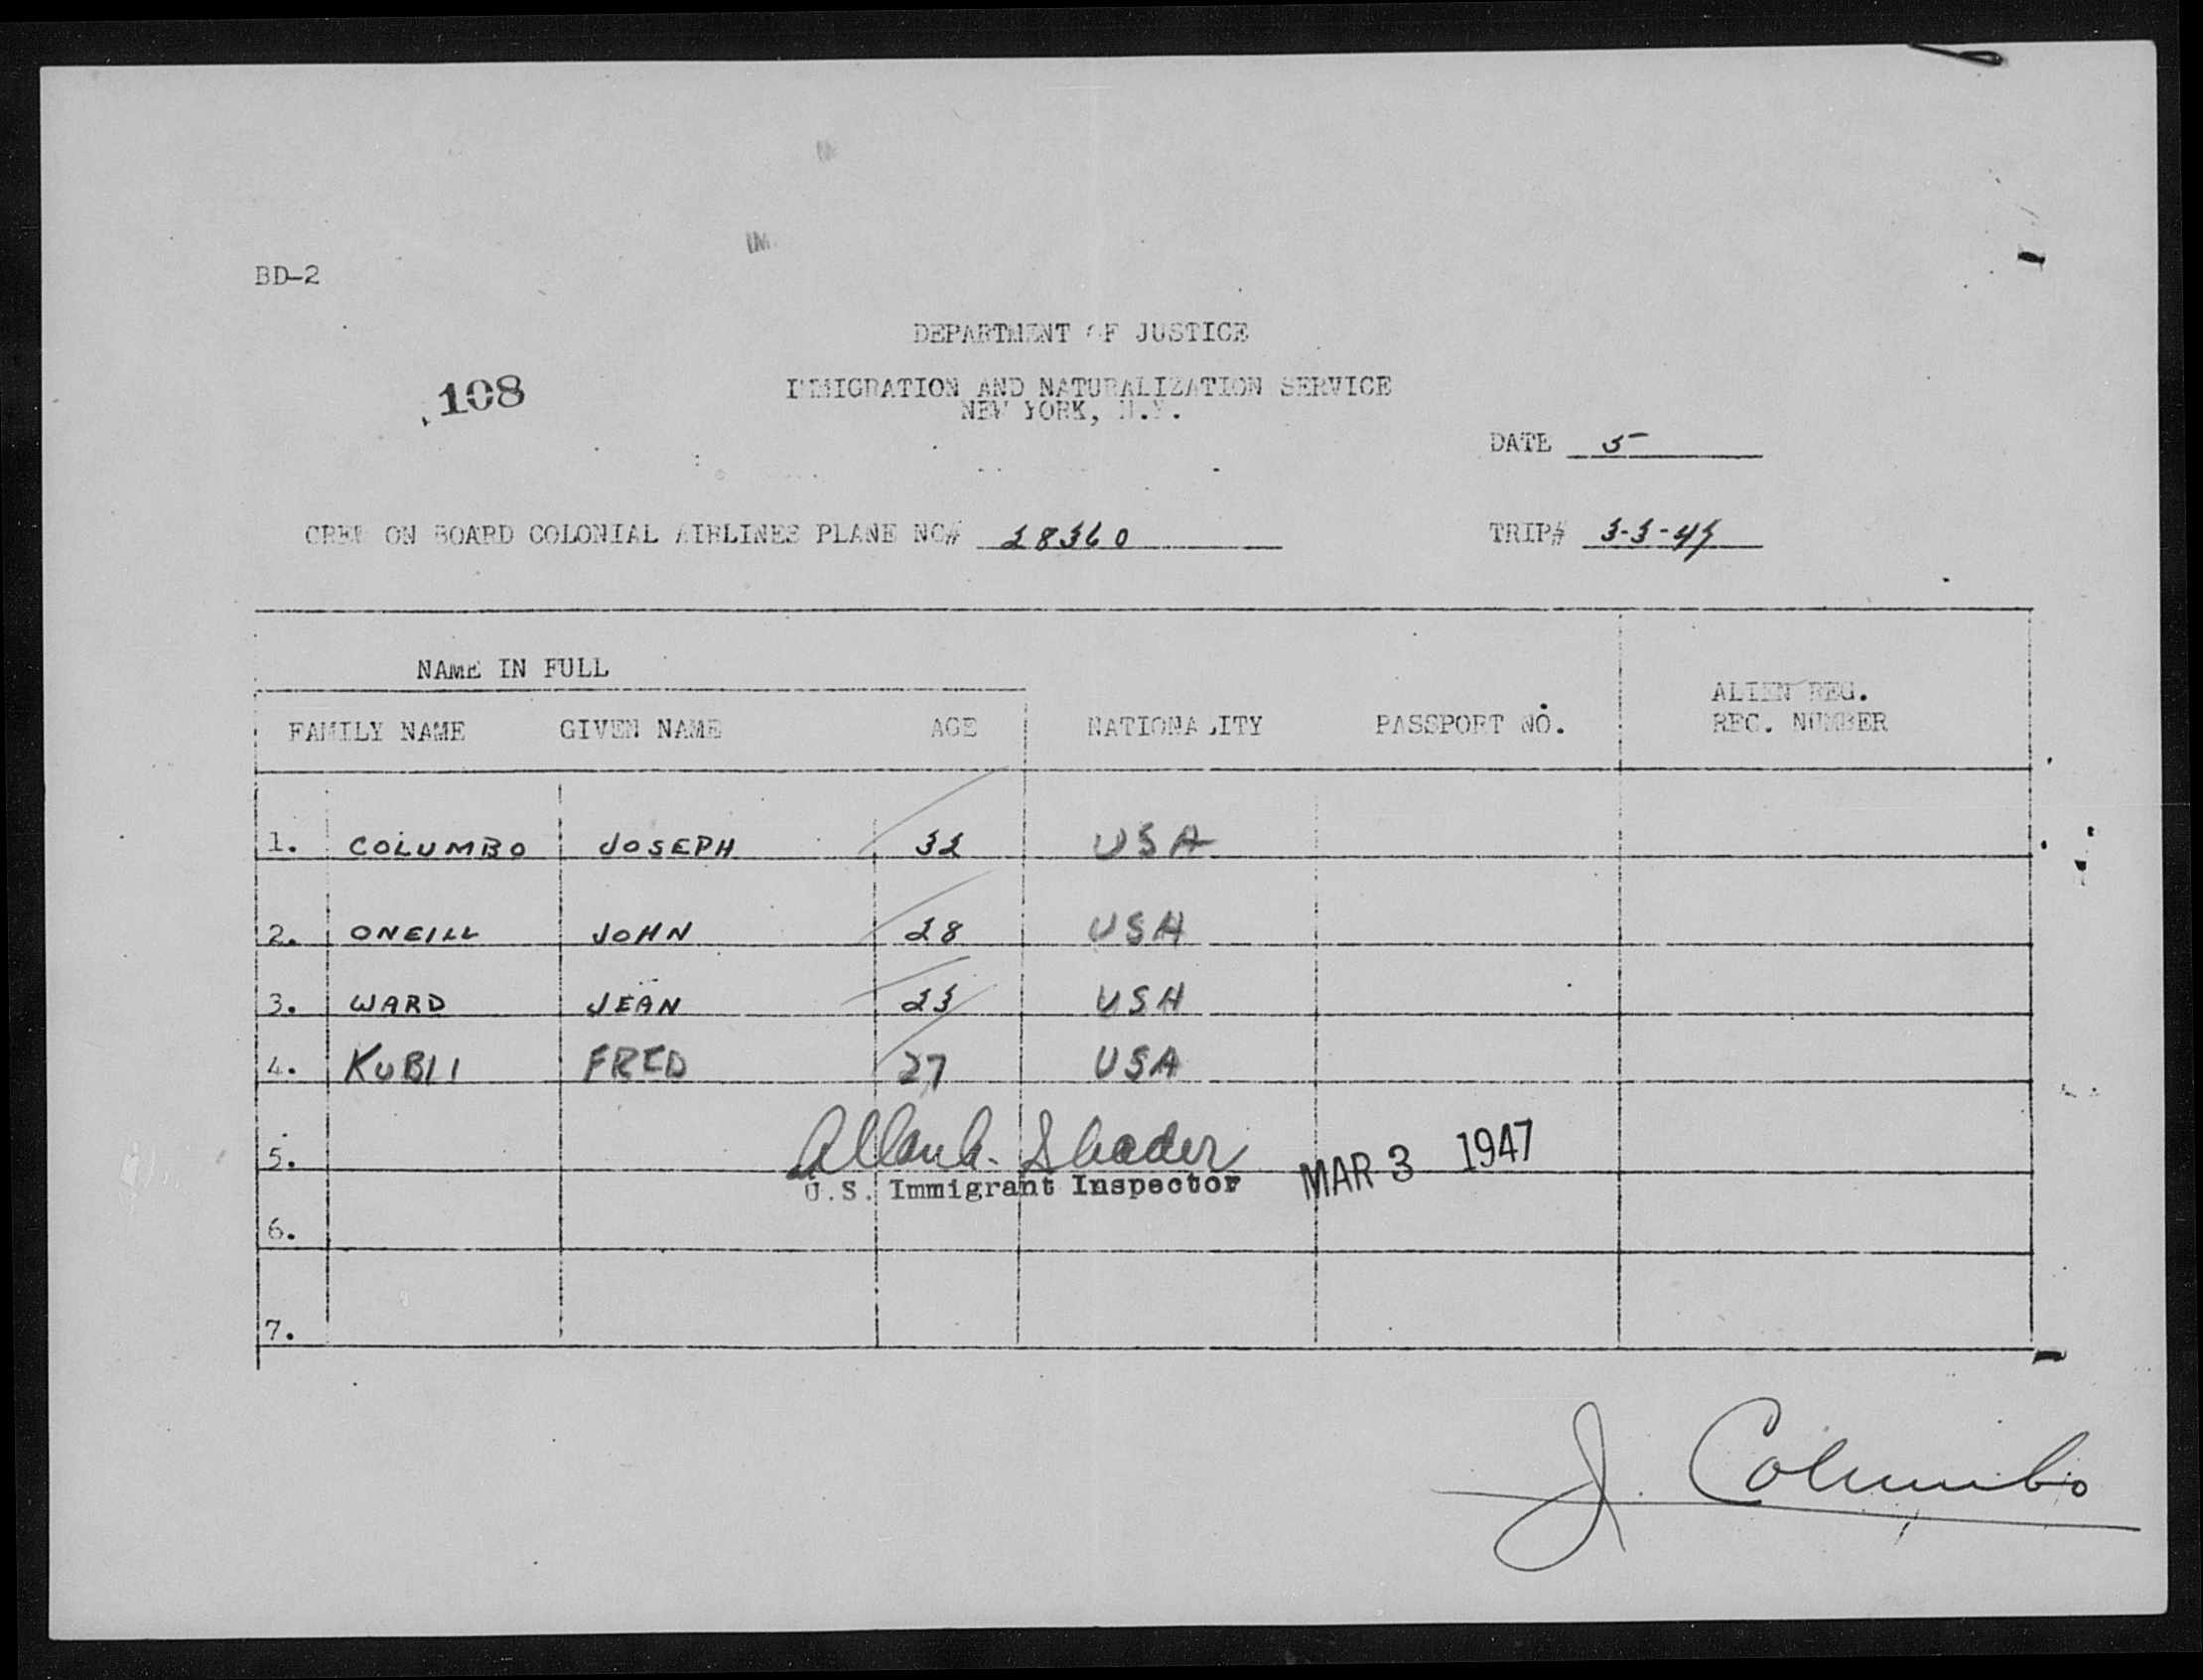 BD-2
DEPARTMENT OF JUSTICE
108
IMMIGRATION AND NATURALIZATION SERVICE
NEW YORK, N.Y.
DATE 5
CREW ON BOARD COLONIAL AIRLINES PLANE NO# 28360
TRIP# 3-3-47
NAME IN FULL
FAMILY NAME GIVEN NAME AGE NATIONALITY PASSPORT NO. ALIEN REG. REC. NUMBER
1. COLUMBO JOSEPH 32 USA
2. ONEILL JOHN 28 USA
3. WARD JEAN 23 USA
4. KUBLI FRED 27 USA
5. Allan A. Shader
U.S. Immigrant Inspector MAR 3 1947
6.
7.
J. Columbo